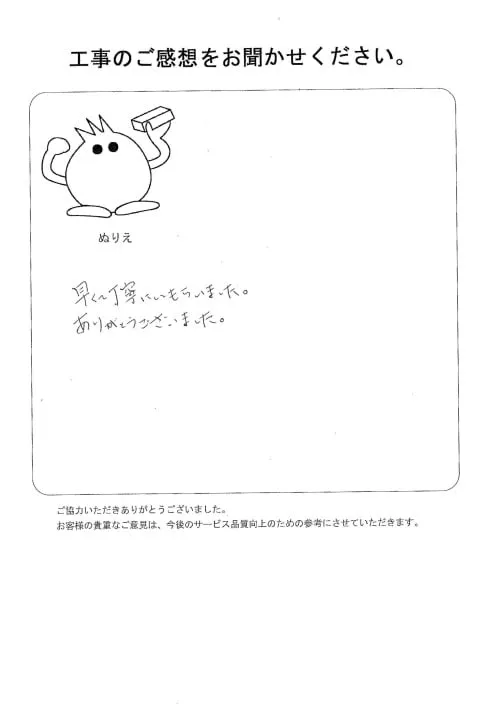 工事のご感想をお聞かせください。
ぬりえ
早くて丁寧にいもらいました。
ありがとうございました。
ご協力いただきありがとうございました。
お客様の貴重なご意見は、今後のサービス品質向上のための参考にさせていただきます。